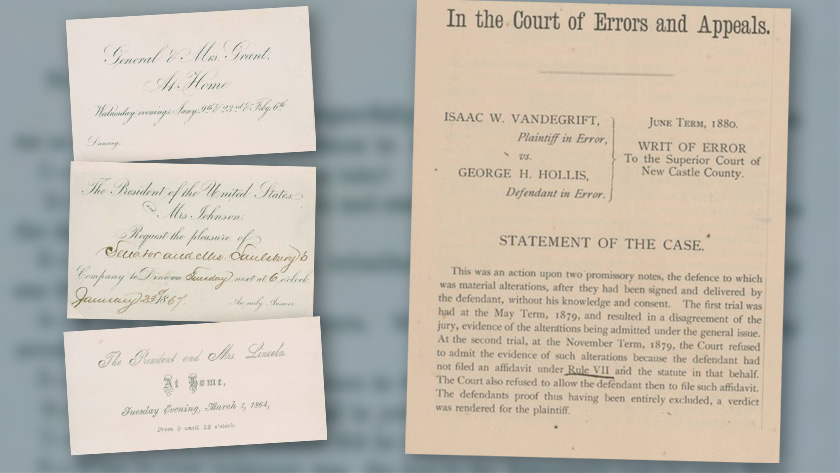 General & Mrs. Grant,
At Home
Wednesday evenings, Jany. 9th & 23rd & Feby. 6th
Dancing.
The President of the United States
& Mrs Johnson
Request the pleasure of
Senator and Mrs. Saulsbury's
Company to Dinner on Tuesday next at 6 o'clock
January 23d 1867.
An early Answer.
The President and Mrs. Lincoln
At Home,
Tuesday Evening, March 1, 1864,
From 9 until 12 o'clock.
In the Court of Errors and Appeals.
ISAAC W. VANDEGRIFT,
Plaintiff in Error,
vs.
GEORGE H. HOLLIS,
Defendant in Error.
JUNE TERM, 1880.
WRIT OF ERROR
To the Superior Court of
New Castle County.
STATEMENT OF THE CASE.
This was an action upon two promissory notes, the defence to which
was material alterations, after they had been signed and delivered by
the defendant, without his knowledge and consent. The first trial was
had at the May Term, 1879, and resulted in a disagreement of the
jury, evidence of the alterations being admitted under the general issue.
At the second trial, at the November Term, 1879, the Court refused
to admit the evidence of such alterations because the defendant had
not filed an affidavit under Rule VII and the statute in that behalf.
The Court also refused to allow the defendant then to file such affidavit.
The defendants proof thus having been entirely excluded, a verdict
was rendered for the plaintiff.